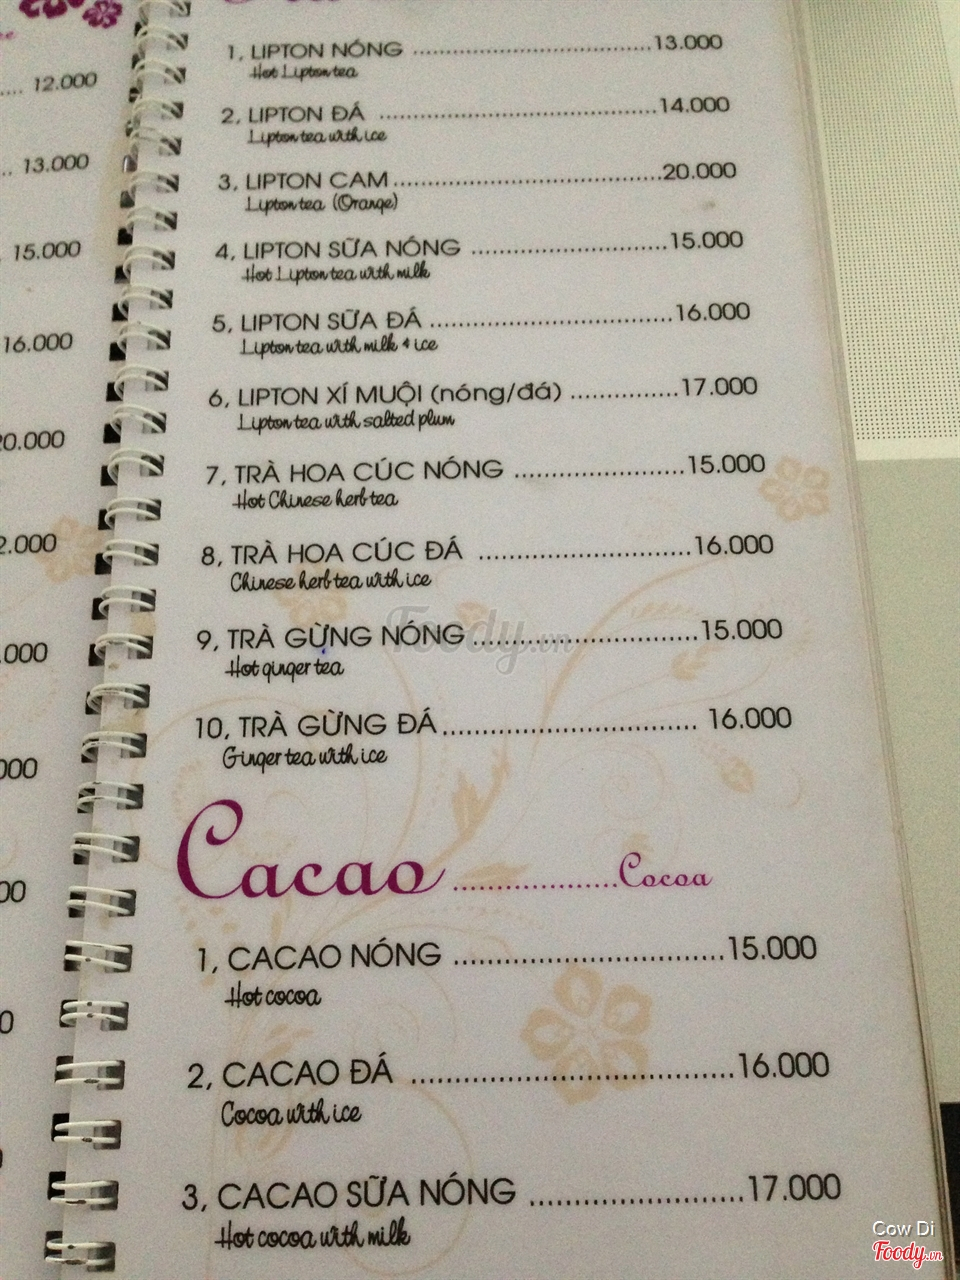 12.000
13.000
15.000
16.000
1, LIPTON NÓNG ........................................13.000
Hot Lipton tea
2, LIPTON ĐÁ ........................................14.000
Lipton tea with ice
3, LIPTON CAM ........................................20.000
Lipton tea (Orange)
4, LIPTON SỮA NÓNG ..............................15.000
Hot Lipton tea with milk
5, LIPTON SỮA ĐÁ ...................................16.000
Lipton tea with milk & ice
6, LIPTON XÍ MUỘI (nóng/đá) ................17.000
Lipton tea with salted plum
7, TRÀ HOA CÚC NÓNG ........................15.000
Hot Chinese herb tea
8, TRÀ HOA CÚC ĐÁ ..............................16.000
Chinese herb tea with ice
9, TRÀ GỪNG NÓNG ..............................15.000
Hot ginger tea
10, TRÀ GỪNG ĐÁ ................................. 16.000
Ginger tea with ice
Foody.vn
Cacao ...................Cocoa
1, CACAO NÓNG ................................15.000
Hot cocoa
2, CACAO ĐÁ .....................................16.000
Cocoa with ice
3, CACAO SỮA NÓNG ........................17.000
Hot cocoa with milk
Cow Di
Foody.vn